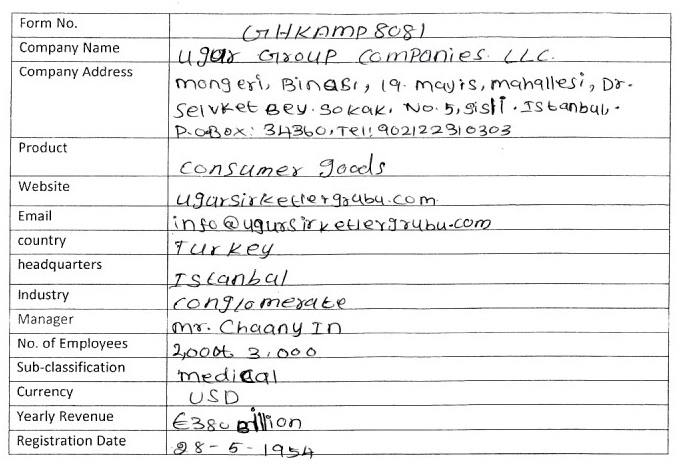 Form No. GHKAMP8081
Company Name ugar Group Companies. LLC.
Company Address mongeri, Binasi, 19. mayis, mahallesi, Dr.
Selvket Bey. Sokak, No. 5, sisli. Istanbul,.
P.oBox: 34360, Tel: 902122310303
Product consumer goods
Website ugursirketlergrubu.com
Email info@ugursirketlergrubu.com
country Turkey
headquarters Istanbul
Industry conglomerate
Manager mr. Chaany In
No. of Employees 3,000
Sub-classification medical
Currency USD
Yearly Revenue €380 Billion
Registration Date 28-5-1954